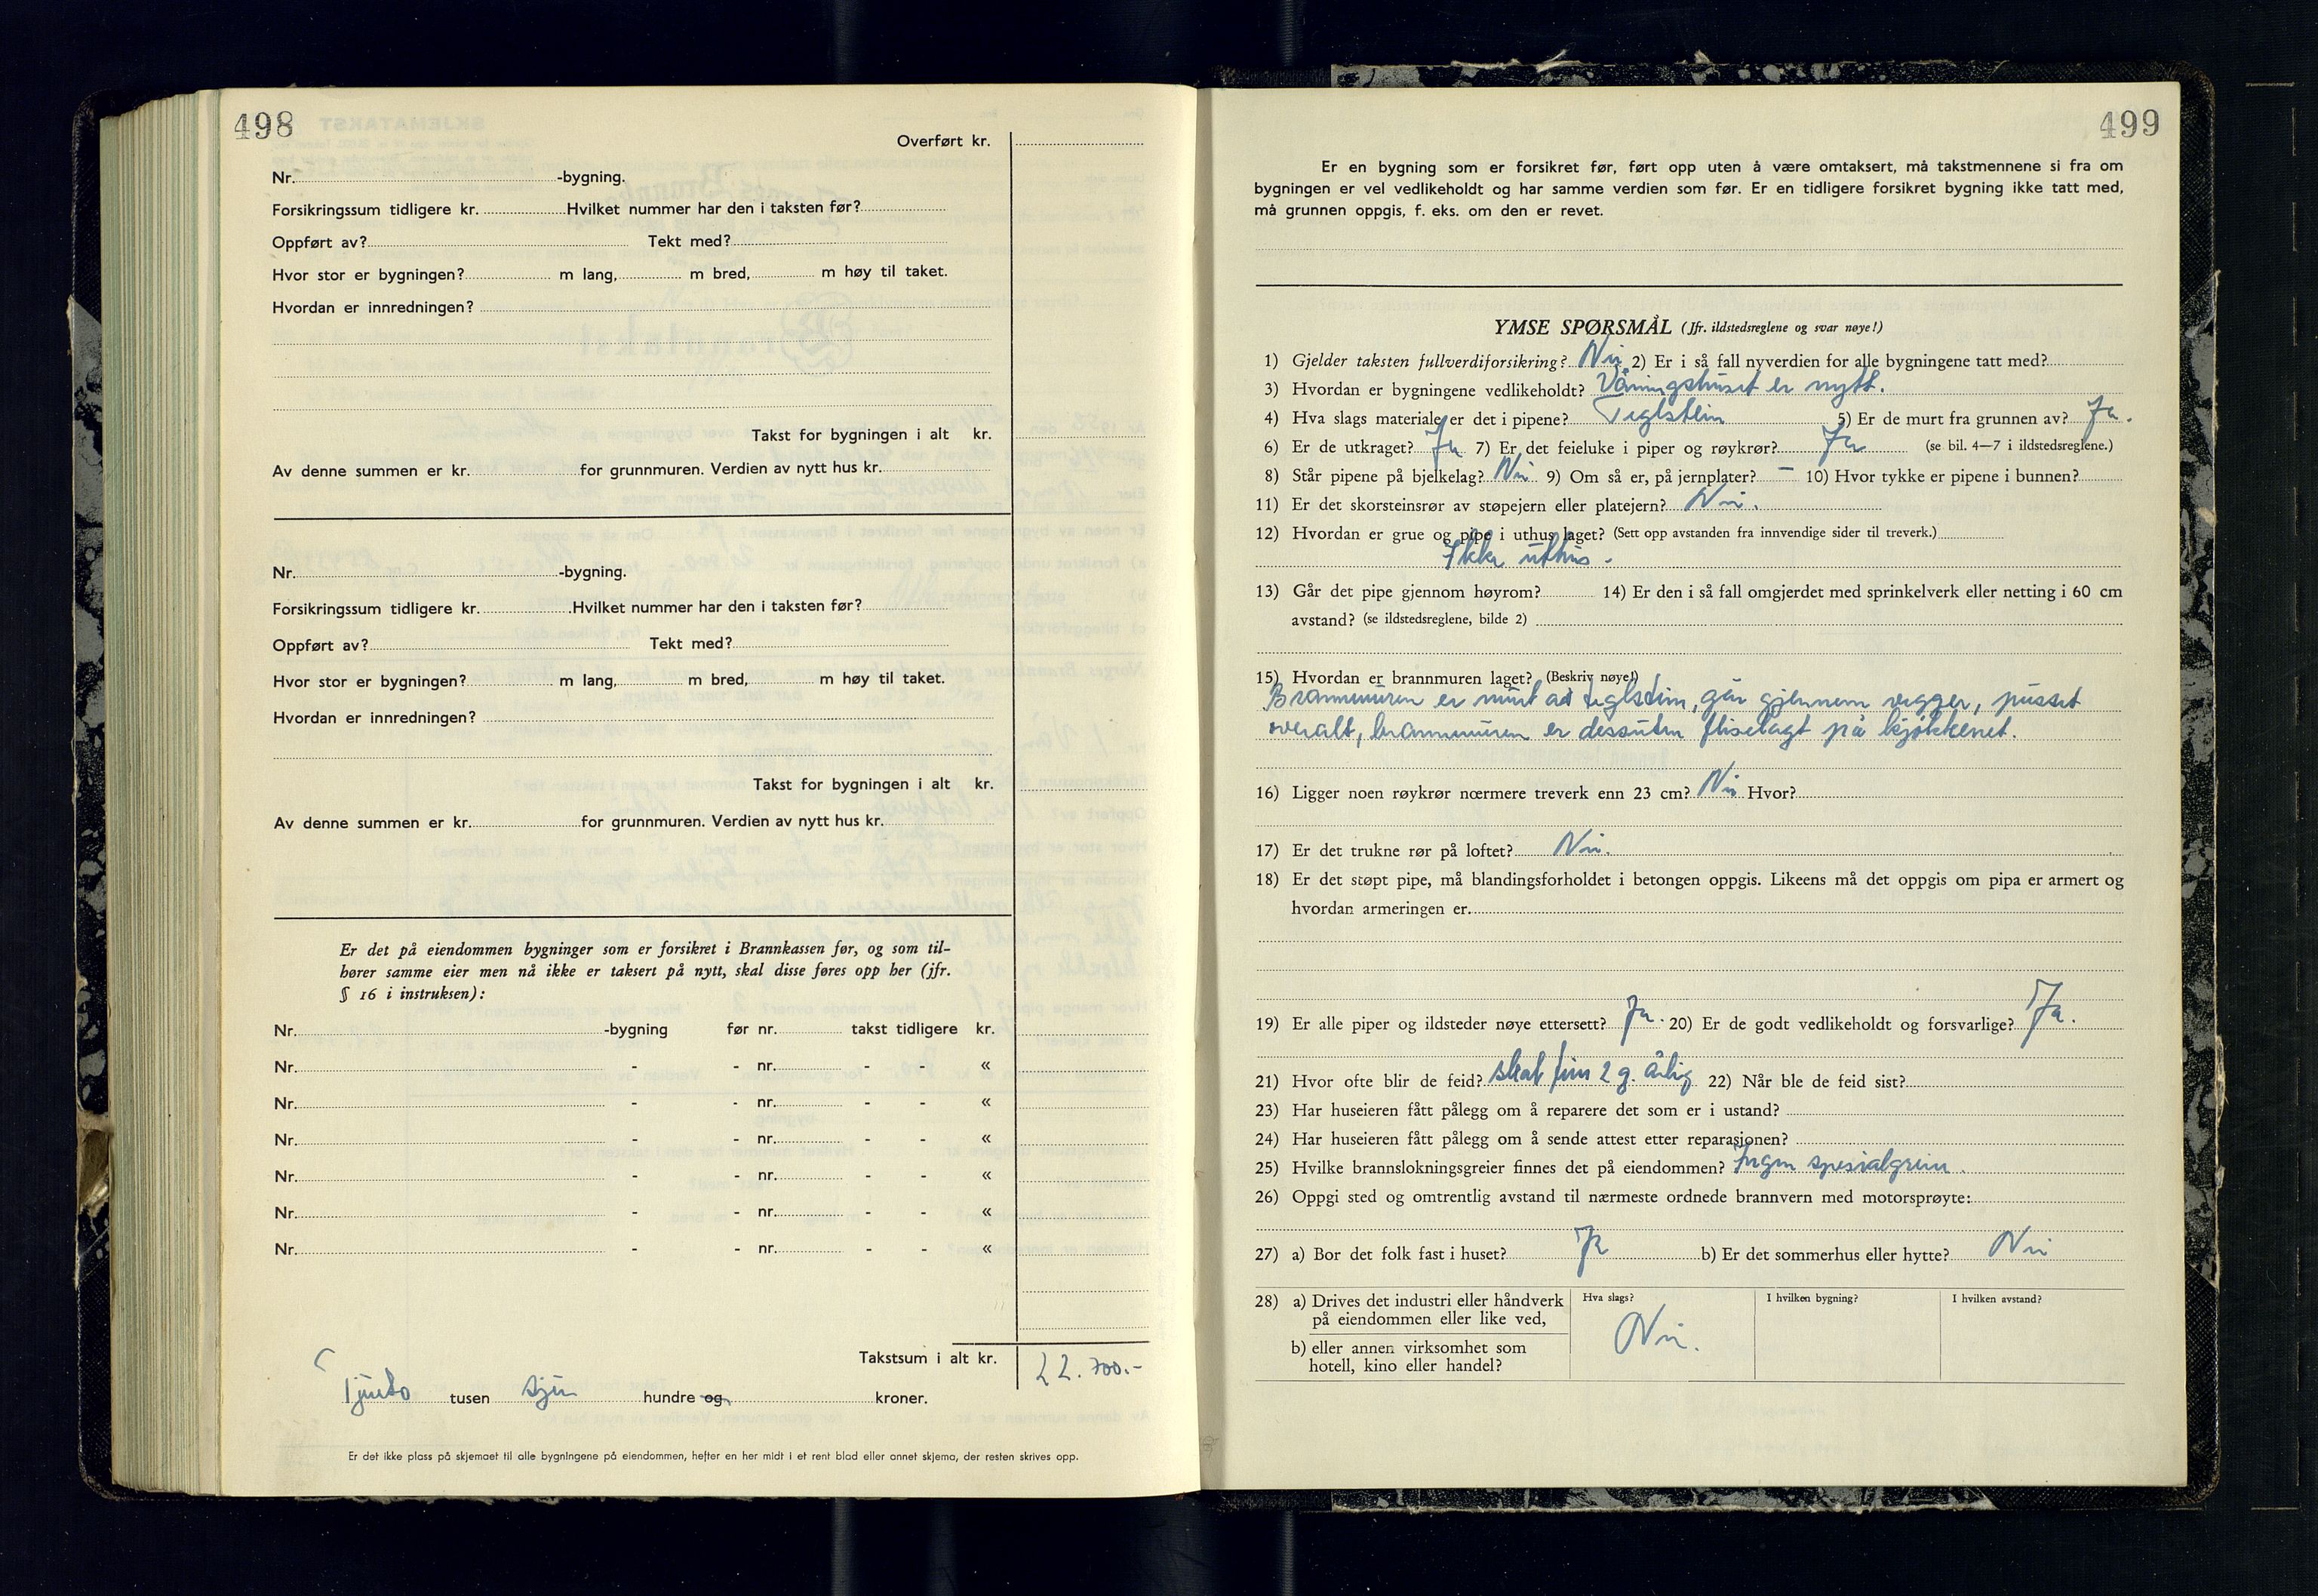 498
Overført kr.
Nr. -bygning.
Forsikringssum tidligere kr. Hvilket nummer har den i taksten før?
Oppført av? Tekt med?
Hvor stor er bygningen? m lang, m bred, m høy til taket.
Hvordan er innredningen?
Takst for bygningen i alt kr.
Av denne summen er kr. for grunnmuren. Verdien av nytt hus kr.
Nr. -bygning.
Forsikringssum tidligere kr. Hvilket nummer har den i taksten før?
Oppført av? Tekt med?
Hvor stor er bygningen? m lang, m bred, m høy til taket.
Hvordan er innredningen?
Takst for bygningen i alt kr.
Av denne summen er kr. for grunnmuren. Verdien av nytt hus kr.
Er det på eiendommen bygninger som er forsikret i Brannkassen før, og som til-
hører samme eier men nå ikke er taksert på nytt, skal disse føres opp her (jfr.
§ 16 i instruksen):
Nr. -bygning før nr. takst tidligere kr.
Nr. - - nr. - - «
Nr. - - nr. - - «
Nr. - - nr. - - «
Nr. - - nr. - - «
Nr. - - nr. - - «
Nr. - - nr. - - «
Takstsum i alt kr. 22.700.-
Tjueto tusen sju hundre og kroner.
Er det ikke plass på skjemaet til alle bygningene på eiendommen, hefter en her midt i et rent blad eller annet skjema, der resten skrives opp.
499
Er en bygning som er forsikret før, ført opp uten å være omtaksert, må takstmennene si fra om
bygningen er vel vedlikeholdt og har samme verdien som før. Er en tidligere forsikret bygning ikke tatt med,
må grunnen oppgis, f. eks. om den er revet.
YMSE SPØRSMÅL (Jfr. ildstedsreglene og svar nøye!)
1) Gjelder taksten fullverdiforsikring? Nei 2) Er i så fall nyverdien for alle bygningene tatt med?
3) Hvordan er bygningene vedlikeholdt? Våningshuset er nytt.
4) Hva slags materiale er det i pipene? Teglstein 5) Er de murt fra grunnen av? Ja.
6) Er de utkraget? Ja 7) Er det feieluke i piper og røykrør? Ja (se bil. 4—7 i ildstedsreglene.)
8) Står pipene på bjelkelag? Nei 9) Om så er, på jernplater? — 10) Hvor tykke er pipene i bunnen?
11) Er det skorsteinsrør av støpejern eller platejern? Nei.
12) Hvordan er grue og pipe i uthus laget? (Sett opp avstanden fra innvendige sider til treverk.)
Ikke uthus.
13) Går det pipe gjennom høyrom? 14) Er den i så fall omgjerdet med sprinkelverk eller netting i 60 cm
avstand? (se ildstedsreglene, bilde 2)
15) Hvordan er brannmuren laget? (Beskriv nøye!)
Brannmuren er murt av teglstein, går gjennem vegger, pusset
overalt, brannmuren er dessuten fliselagt på kjøkkenet.
16) Ligger noen røykrør nærmere treverk enn 23 cm? Nei Hvor?
17) Er det trukne rør på loftet? Nei.
18) Er det støpt pipe, må blandingsforholdet i betongen oppgis. Likeens må det oppgis om pipa er armert og
hvordan armeringen er.
19) Er alle piper og ildsteder nøye ettersett? Ja. 20) Er de godt vedlikeholdt og forsvarlige? Ja.
21) Hvor ofte blir de feid? skal feies 2 g. årlig 22) Når ble de feid sist?
23) Har huseieren fått pålegg om å reparere det som er i ustand?
24) Har huseieren fått pålegg om å sende attest etter reparasjonen?
25) Hvilke brannslokningsgreier finnes det på eiendommen? Ingen spesialgreier.
26) Oppgi sted og omtrentlig avstand til nærmeste ordnede brannvern med motorsprøyte:
27) a) Bor det folk fast i huset? Ja b) Er det sommerhus eller hytte? Nei
28) a) Drives det industri eller håndverk Hva slags? I hvilken bygning? I hvilken avstand?
på eiendommen eller like ved,
Nei.
b) eller annen virksomhet som
hotell, kino eller handel?